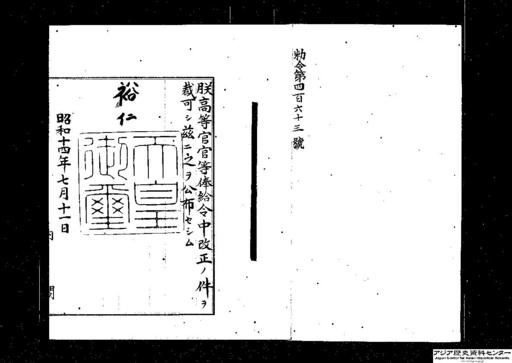 勅令第四百六十三號
朕高等官官等俸給令中改正ノ件ヲ
裁可シ茲ニ之ヲ公布セシム
裕仁
天皇
御璽
昭和十四年七月十一日
内閣
アジア歴史資料センター
Japan Center for Asian Historical Records